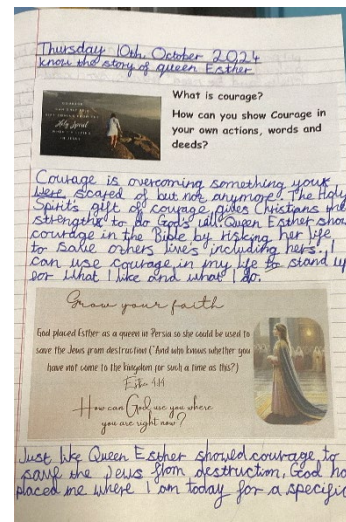 Thursday 10th October 2024
know the story of queen Esther
What is courage?
How can you show Courage in
your own actions, words and
deeds?
Holy Spirit
Courage is overcoming something your
were scared of but not anymore. The Holy
Spirit's gift of courage gives Christians the
strength to do God's will. Queen Esther show
courage in the Bible by risking her life
to save others live's including hers. I
can use courage in my life to stand up
for what I like and what I do.
Grow your faith
God placed Esther as a queen in Persia so she could be used to
save the Jews from destruction ("And who knows whether you
have not come to the kingdom for such a time as this?)
Esther 4:14
How can God use you where
you are right now?
Just like Queen Esther showed courage to
save the Jews from destruction, God ha
placed me where I am today for a specific